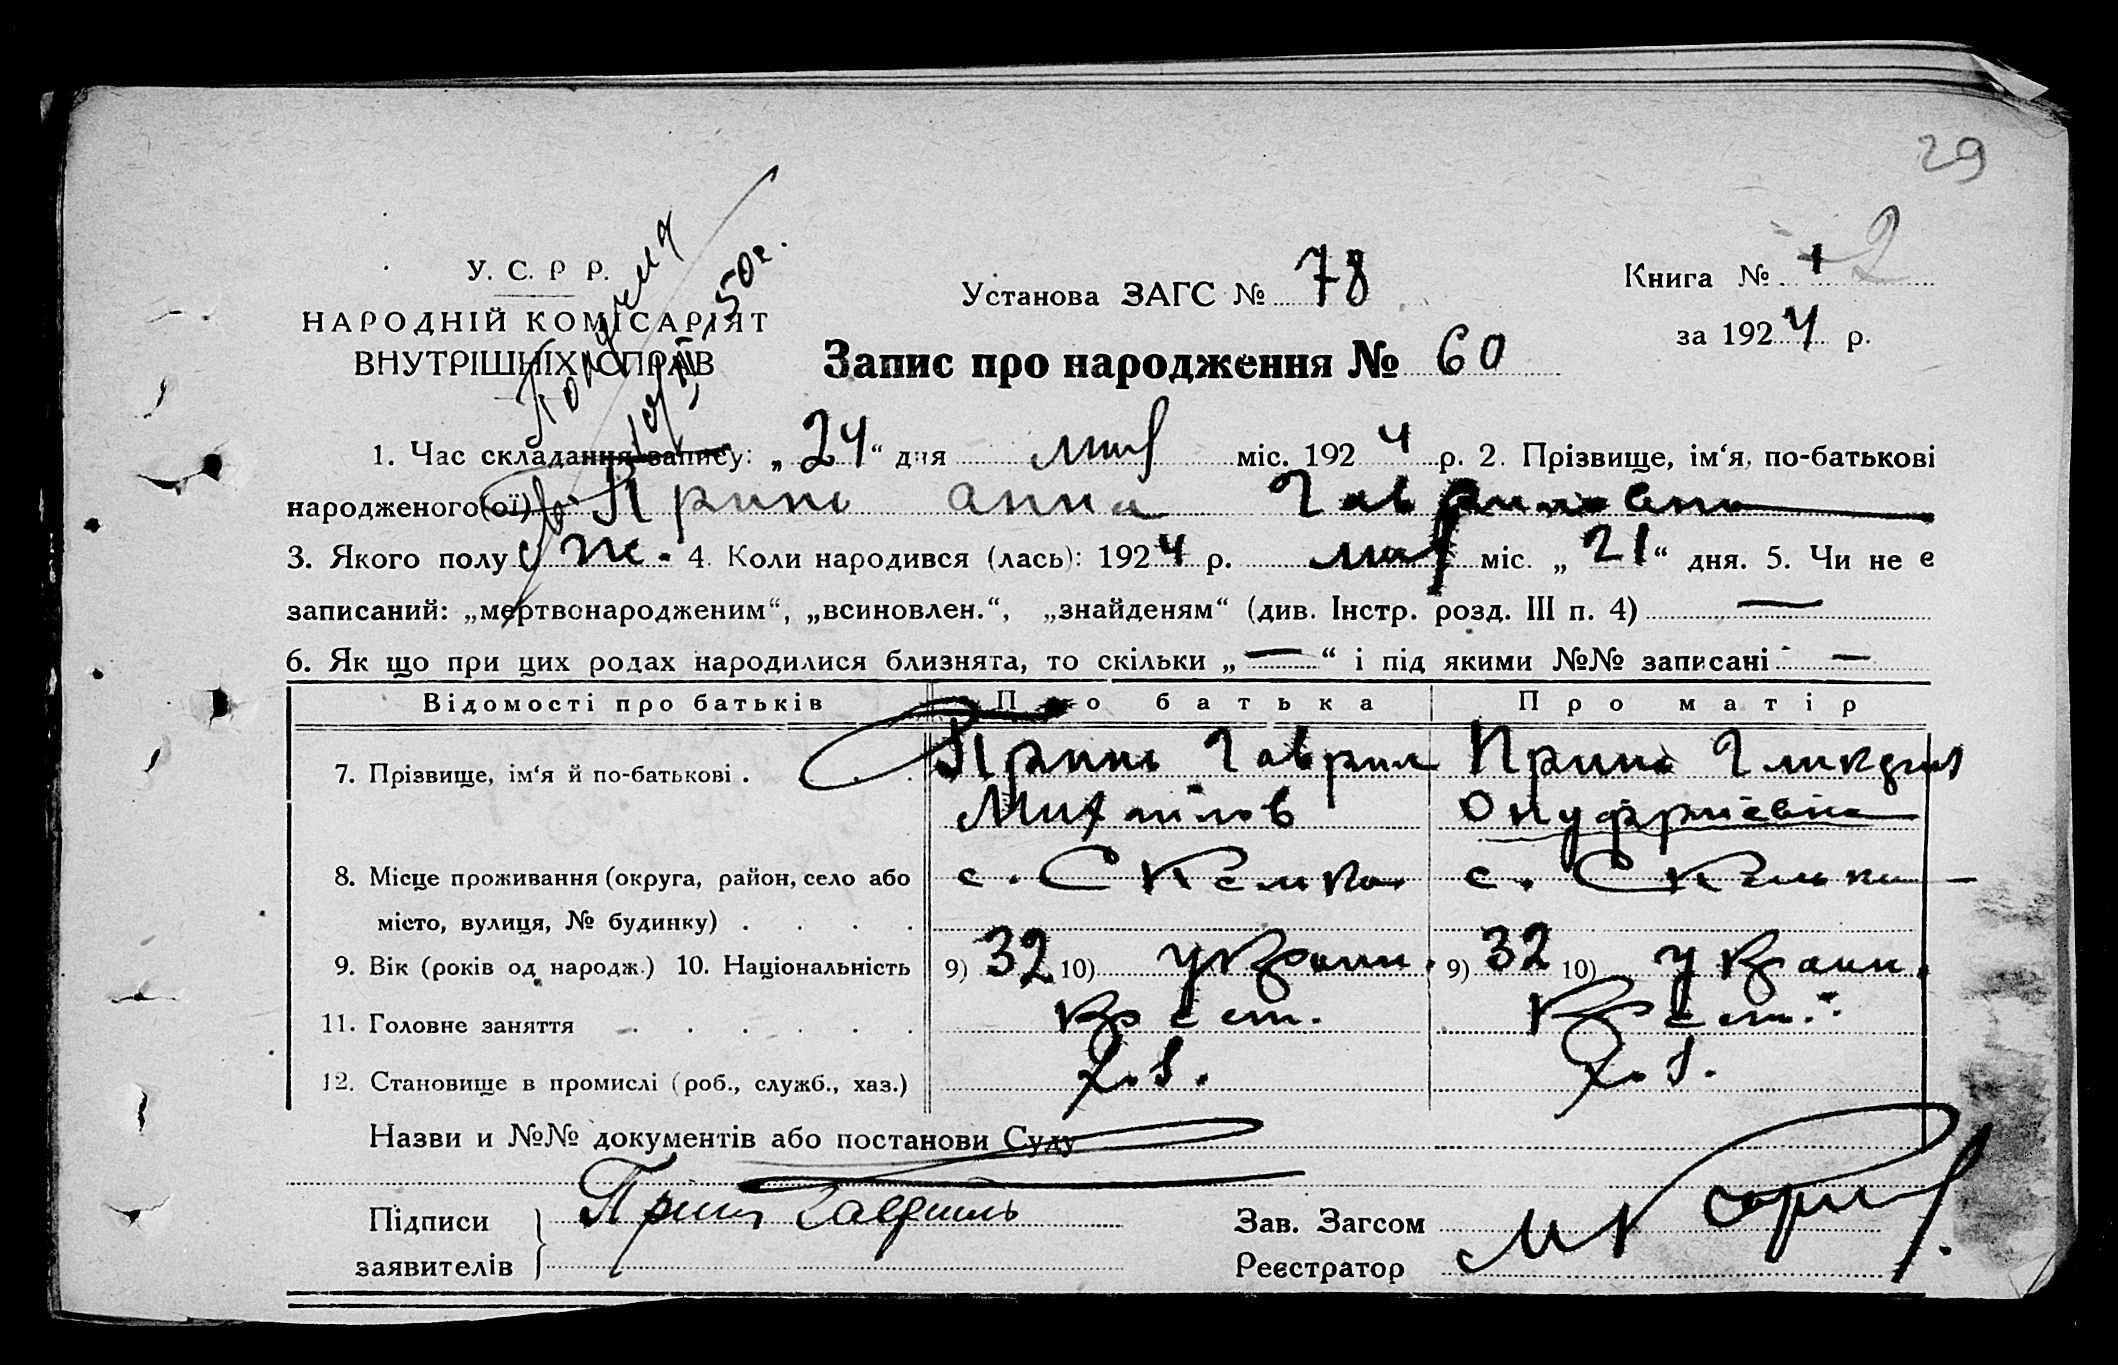 29
У. С. Р Р.
НАРОДНІЙ КОМІСАРІЯТ
ВНУТРІШНІХ СПРАВ
Установа ЗАГС № 78
Книга № 1 2
за 1924 р.
Запис про народження № 60
50 г.
1. Час складання запису: „24“ дня мая міс. 1924 р. 2. Прізвище, ім‘я, по-батькові
народженого(ої) Принь анна Гавриловна
3. Якого полу ж. 4. Коли народився (лась): 1924 р. мая міс. „21“ дня. 5. Чи не є
записаний: „мертвонародженим“, „всиновлен.“, „знайденям“ (див. Інстр. розд. III п. 4) —
6. Як що при цих родах народилися близнята, то скільки „—“ і під якими №№ записані —
Відомості про батьків Про батька Про матір
7. Прізвище, ім‘я й по-батькові . Принь Гаврил Принь Гликерия
Михайлов Онуфриевна
8. Місце проживання (округа, район, село або с. Скелька с. Скельки
місто, вулиця, № будинку)
9. Вік (років од народж.) 10. Національність 9) 32 10) украин. 9) 32 10) украин.
11. Головне заняття Крест. Крест.
12. Становище в промислі (роб., служб., хаз.) Х.
Назви и №№ документів або постанови Суду
Підписи Принь Гавриль Зав. Загсом
заявителів Реєстратор